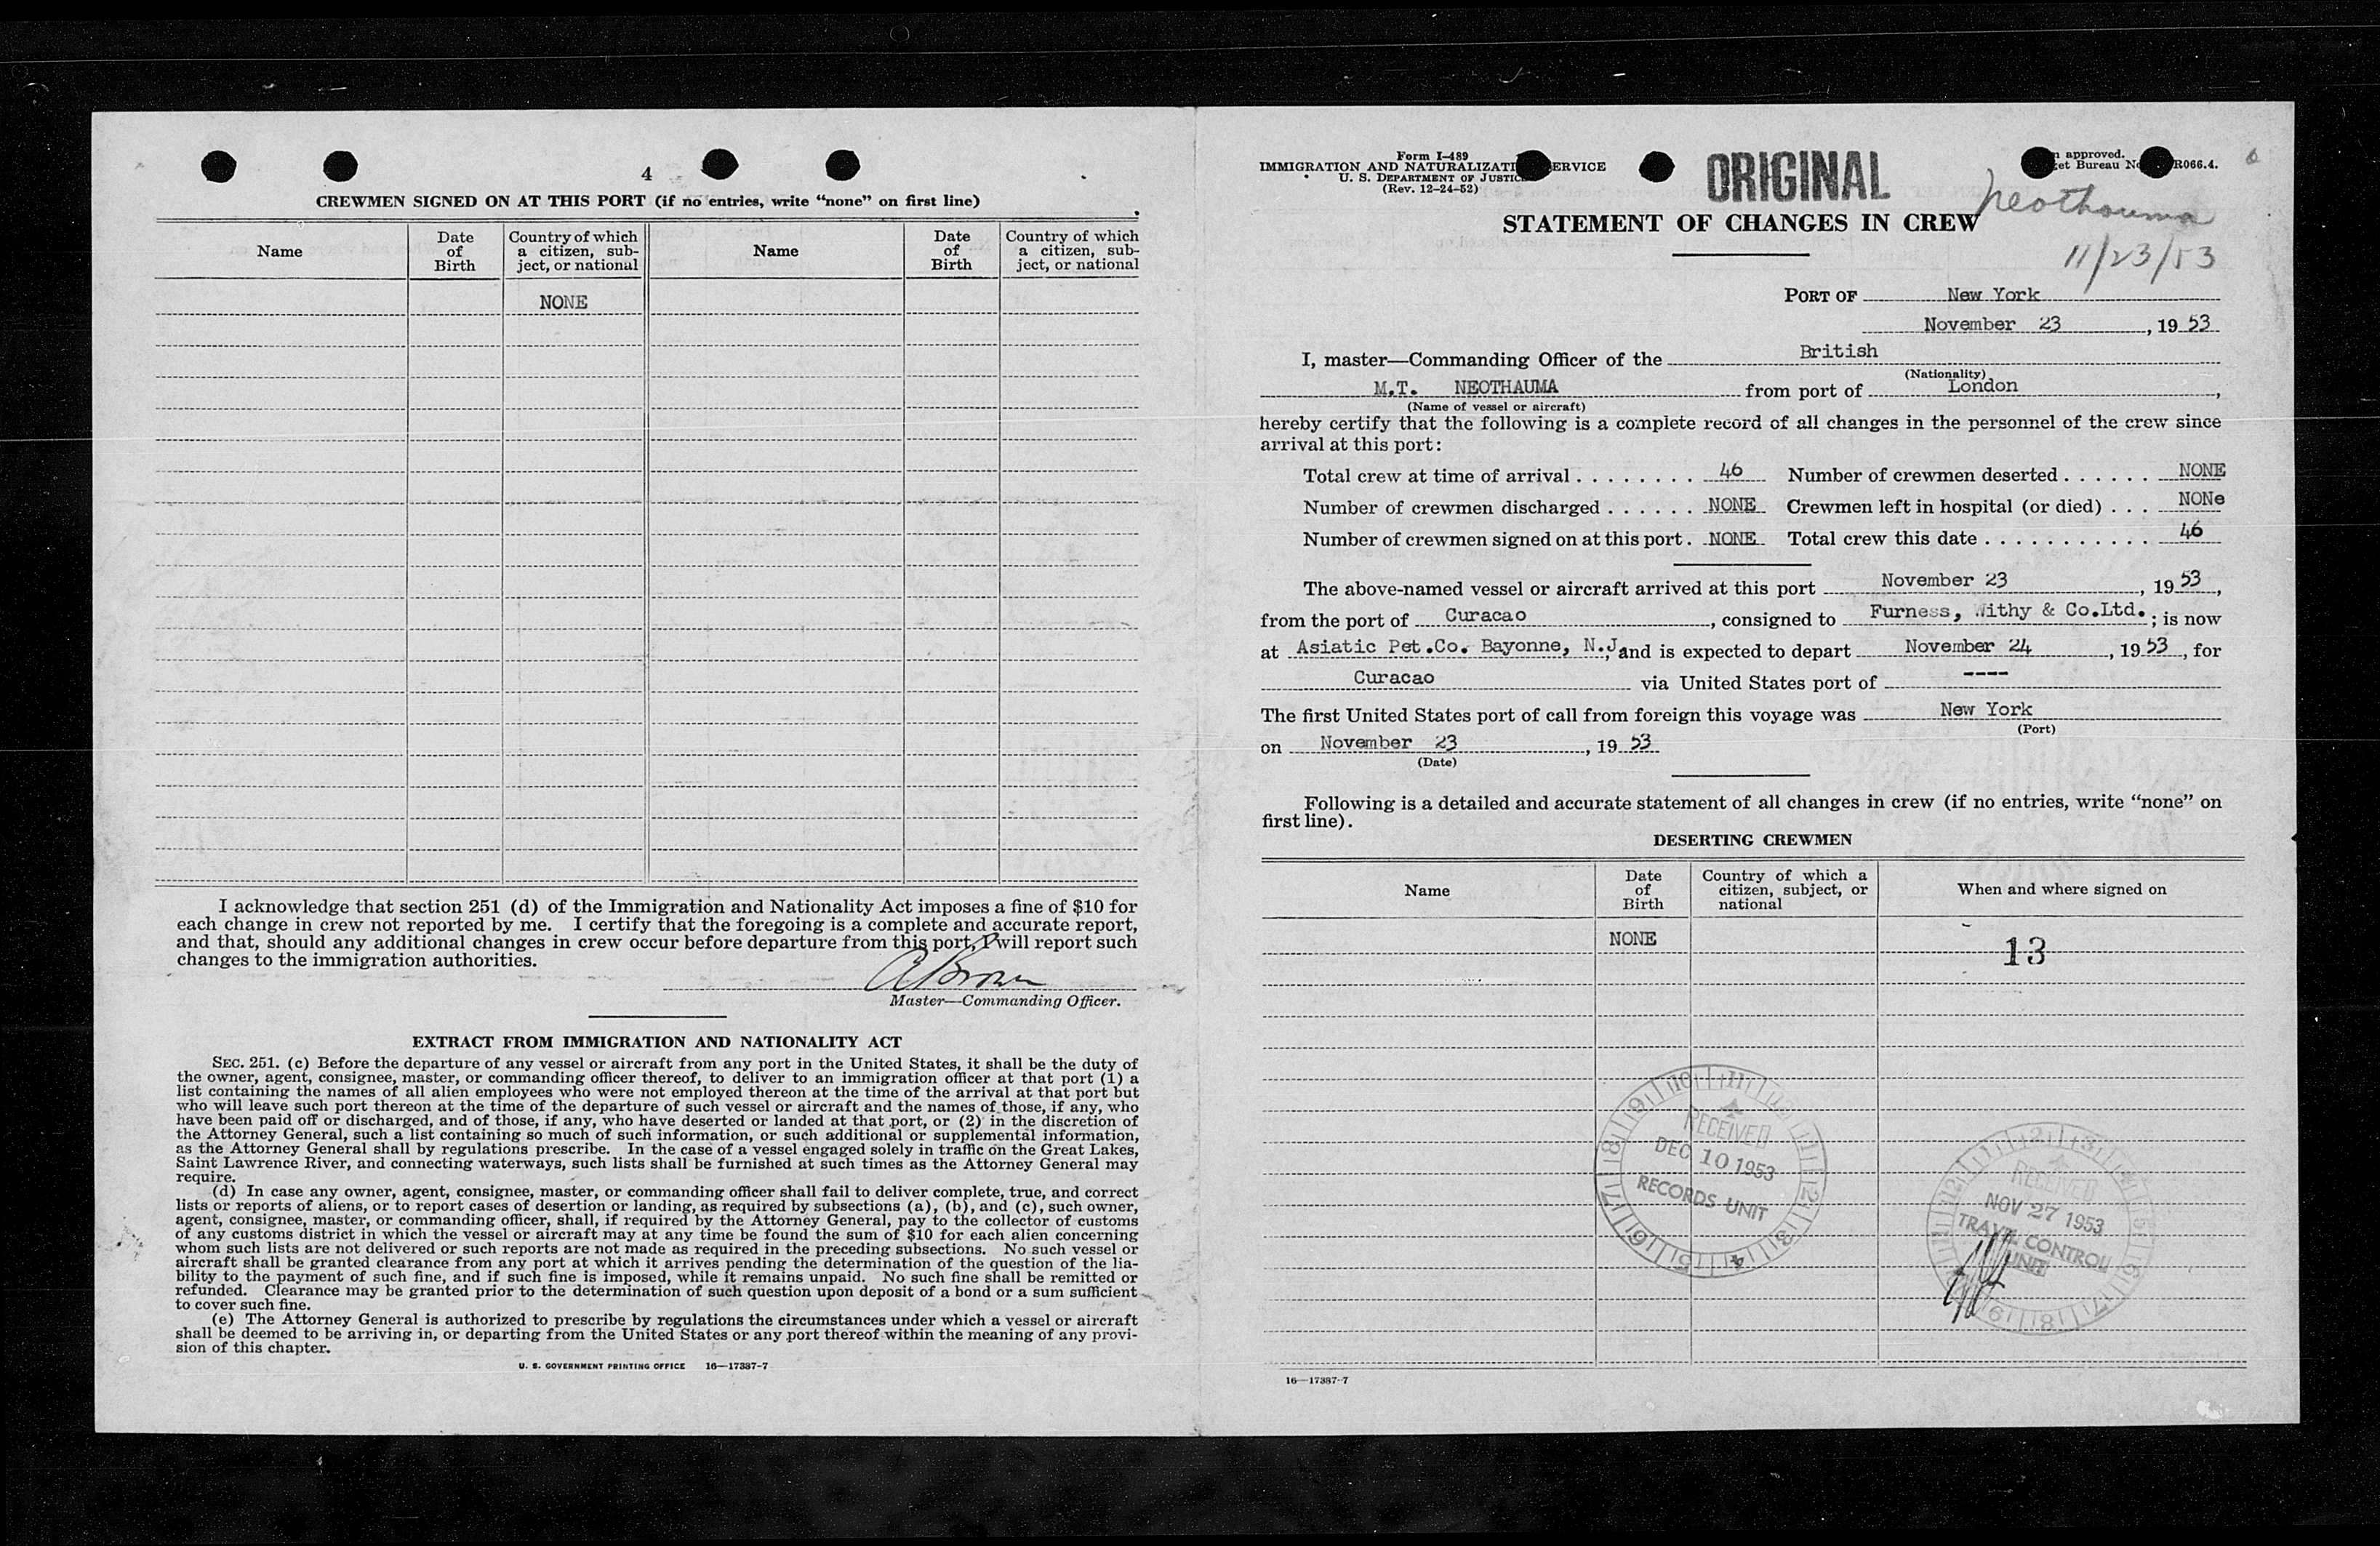 4
CREWMEN SIGNED ON AT THIS PORT (if no entries, write “none” on first line)
Name Date of Birth Country of which a citizen, sub-ject, or national Name Date of Birth Country of which a citizen, sub-ject, or national
NONE
I acknowledge that section 251 (d) of the Immigration and Nationality Act imposes a fine of $10 for
each change in crew not reported by me. I certify that the foregoing is a complete and accurate report,
and that, should any additional changes in crew occur before departure from this port, I will report such
changes to the immigration authorities.
Brown
Master—Commanding Officer.
EXTRACT FROM IMMIGRATION AND NATIONALITY ACT
SEC. 251. (c) Before the departure of any vessel or aircraft from any port in the United States, it shall be the duty of
the owner, agent, consignee, master, or commanding officer thereof, to deliver to an immigration officer at that port (1) a
list containing the names of all alien employees who were not employed thereon at the time of the arrival at that port but
who will leave such port thereon at the time of the departure of such vessel or aircraft and the names of those, if any, who
have been paid off or discharged, and of those, if any, who have deserted or landed at that port, or (2) in the discretion of
the Attorney General, such a list containing so much of such information, or such additional or supplemental information,
as the Attorney General shall by regulations prescribe. In the case of a vessel engaged solely in traffic on the Great Lakes,
Saint Lawrence River, and connecting waterways, such lists shall be furnished at such times as the Attorney General may
require.
(d) In case any owner, agent, consignee, master, or commanding officer shall fail to deliver complete, true, and correct
lists or reports of aliens, or to report cases of desertion or landing, as required by subsections (a), (b), and (c), such owner,
agent, consignee, master, or commanding officer, shall, if required by the Attorney General, pay to the collector of customs
of any customs district in which the vessel or aircraft may at any time be found the sum of $10 for each alien concerning
whom such lists are not delivered or such reports are not made as required in the preceding subsections. No such vessel or
aircraft shall be granted clearance from any port at which it arrives pending the determination of the question of the lia-
bility to the payment of such fine, and if such fine is imposed, while it remains unpaid. No such fine shall be remitted or
refunded. Clearance may be granted prior to the determination of such question upon deposit of a bond or a sum sufficient
to cover such fine.
(e) The Attorney General is authorized to prescribe by regulations the circumstances under which a vessel or aircraft
shall be deemed to be arriving in, or departing from the United States or any port thereof within the meaning of any provi-
sion of this chapter.
U. S. GOVERNMENT PRINTING OFFICE 16—17387-7
Form I-489
IMMIGRATION AND NATURALIZATI ERVICE
U. S. DEPARTMENT OF JUSTIC
(Rev. 12-24-52)
ORIGINAL
approved.
et Bureau No R066.4.
6
STATEMENT OF CHANGES IN CREW
Neothauma
11/23/53
PORT OF New York
November 23, 19 53
I, master—Commanding Officer of the British
(Nationality)
M.T. NEOTHAUMA from port of London,
(Name of vessel or aircraft)
hereby certify that the following is a complete record of all changes in the personnel of the crew since
arrival at this port:
Total crew at time of arrival 46 Number of crewmen deserted NONE
Number of crewmen discharged NONE Crewmen left in hospital (or died) NONe
Number of crewmen signed on at this port. NONE Total crew this date 46
The above-named vessel or aircraft arrived at this port November 23, 19 53,
from the port of Curacao, consigned to Furness, Withy & Co.Ltd.; is now
at Asiatic Pet.Co. Bayonne, N.J, and is expected to depart November 24, 19 53, for
Curacao via United States port of ----
The first United States port of call from foreign this voyage was New York
(Port)
on November 23, 19 53
(Date)
Following is a detailed and accurate statement of all changes in crew (if no entries, write “none” on
first line).
DESERTING CREWMEN
Name Date of Birth Country of which a citizen, subject, or national When and where signed on
NONE
13
RECEIVED
DEC 10 1953
RECORDS UNIT
RECEIVED
NOV 27 1953
TRAVEL CONTROL
UNIT
16—17387-7